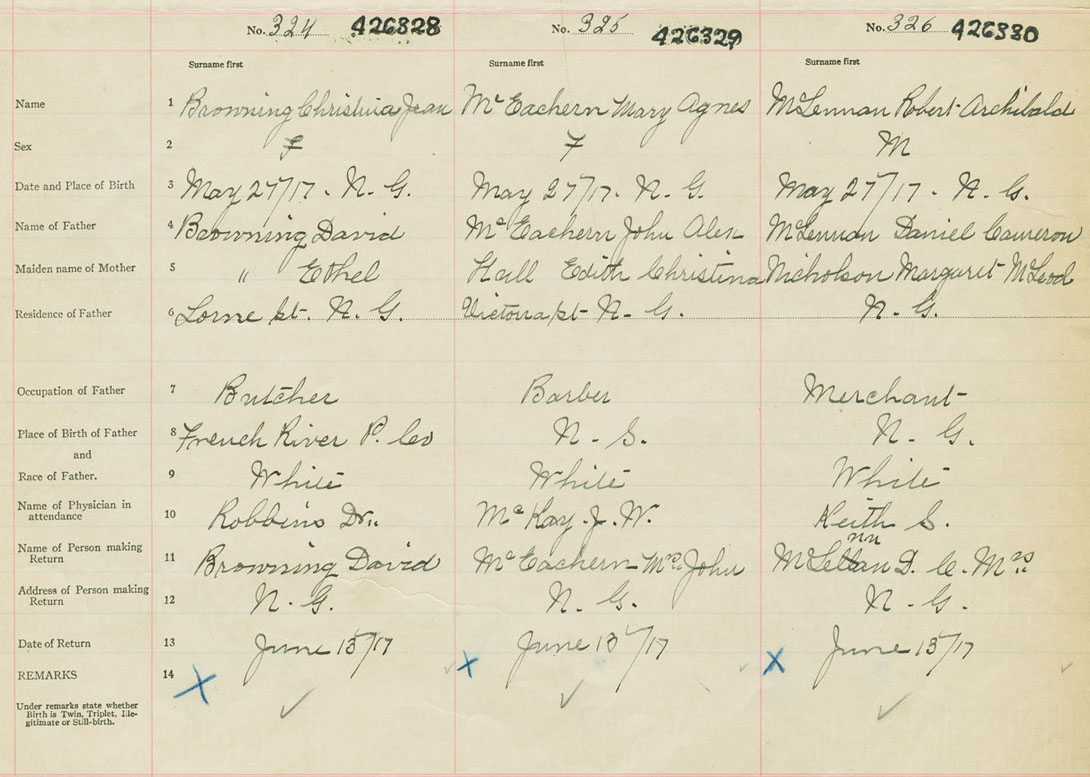 No. 324 426328 No. 325 426329 No. 326 426330
Surname first Surname first Surname first
Name 1 Browning Christina Jean McEachern Mary Agnes McLennan Robert Archibald
Sex 2 F F M
Date and Place of Birth 3 May 27/17. N. G. May 27/17. N. G. May 27/17. N. G.
Name of Father 4 Browning David McEachern John Alex McLennan Daniel Cameron
Maiden name of Mother 5 " Ethel Hall Edith Christina Nicholson Margaret McLeod
Residence of Father 6 Lorne St. N. G. Victoria St N. G. N. G.
Occupation of Father 7 Butcher Barber Merchant
Place of Birth of Father 8 French River P. Co N. S. N. G.
and
Race of Father. 9 White White White
Name of Physician in
attendance 10 Robbins Dr. McKay. J. W. Keith S.
nn
Name of Person making
Return 11 Browning David McEachern Mrs John McLellan D. C. Mrs
Address of Person making
Return 12 N. G. N. G. N. G.
Date of Return 13 June 13/17 June 13/17 June 13/17
REMARKS 14
Under remarks state whether
Birth is Twin, Triplet, Ille-
gitimate or Still-birth.